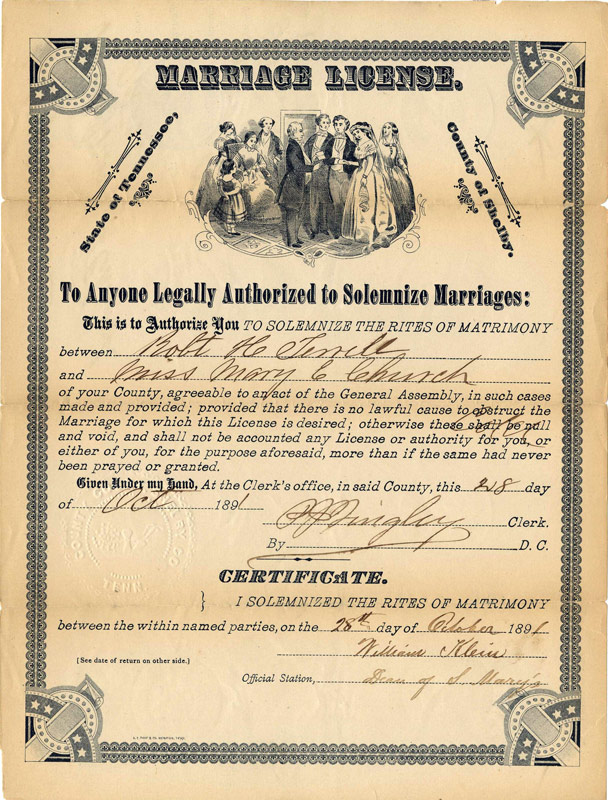 MARRIAGE LICENSE.
State of Tennessee,
County of Shelby.
To Anyone Legally Authorized to Solemnize Marriages:
This is to Authorize You TO SOLEMNIZE THE RITES OF MATRIMONY
between Robt H Terrell
and Miss Mary E Church
of your County, agreeable to an act of the General Assembly, in such cases
made and provided; provided that there is no lawful cause to obstruct the
Marriage for which this License is desired; otherwise these shall be null
and void, and shall not be accounted any License or authority for you, or
either of you, for the purpose aforesaid, more than if the same had never
been prayed or granted.
Given Under my Hand, At the Clerk's office, in said County, this 28 day
of Oct 1891
Clerk.
By D. C.
CERTIFICATE.
} I SOLEMNIZED THE RITES OF MATRIMONY
between the within named parties, on the 28th day of October 1891
William Klein
[See date of return on other side.]
Official Station, Dean of S. Mary's